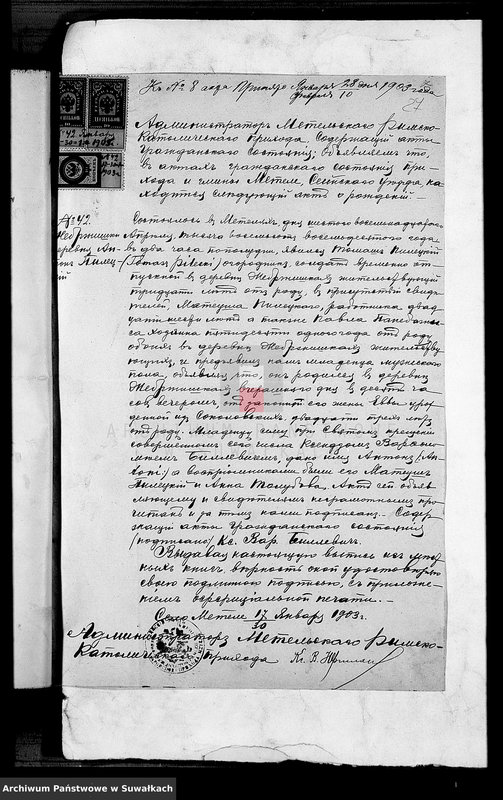 Къ № 8 года Принято Января 28 дня 1903 года
Февраля 10
24
Администраторъ Метельскаго Римско-
Католическаго прихода, Содержащій акты
Гражданскаго Состоянія, объявляетъ что
въ актахъ гражданскаго состоянія при-
хода и гмины Метеле, Сейнскаго уѣзда на
ходится слѣдующій актъ о рожденіи:
№ 42.
Состоялось въ Метеляхъ дня
Апрѣля тысяча восемьсотъ восемьдесятаго года
въ два часа пополудни, явился Томашъ Пилецкій
(Tomasz Pilecki) огородникъ солдатъ временно от
пускной въ деревнѣ жительствующій
тридцати лѣтъ отъ роду, въ присутствіи свидѣ
телей Матеуша Пилецкаго работника двад
цати лѣтъ а также Павла
са хозяина пятидесяти одного года отъ роду
обоихъ въ деревнѣ жительству
ющихъ, и предъявилъ намъ младенца мужескаго
пола, объявляя что, онъ родился въ деревнѣ
дня въ десять ча
совъ вечеромъ, отъ законной его жены Евы уро
жденной изъ Соколовскихъ, двадцати трехъ лѣтъ
отъ роду. Младенцу сему при Святомъ крещеніи
совершенномъ сего числа Ксендзомъ Варѳоло
меемъ Биллевичемъ, дано имя Антонъ (An-
toni) а воспріемниками были его Матеушъ
Пилецкій и Анна Актъ сей объяв
ляющему и свидѣтелямъ неграмотнымъ про
читанъ и за тѣмъ нами подписанъ. Содер
жащій акты гражданскаго состоянія
(подписано) Кс. Вар. Биллевичъ.
Выдавая настоящую выпись изъ
ныхъ книгъ, вѣрность оной удостовѣряю
своею подлинною подписью, съ приложе-
ніемъ оффиціальной печати.
Село Метеле 17/30 Января 1903 г.
Администраторъ Метельскаго Римско-
Католическаго прихода Кс. В.
Archiwum Państwowe w Suwałkach